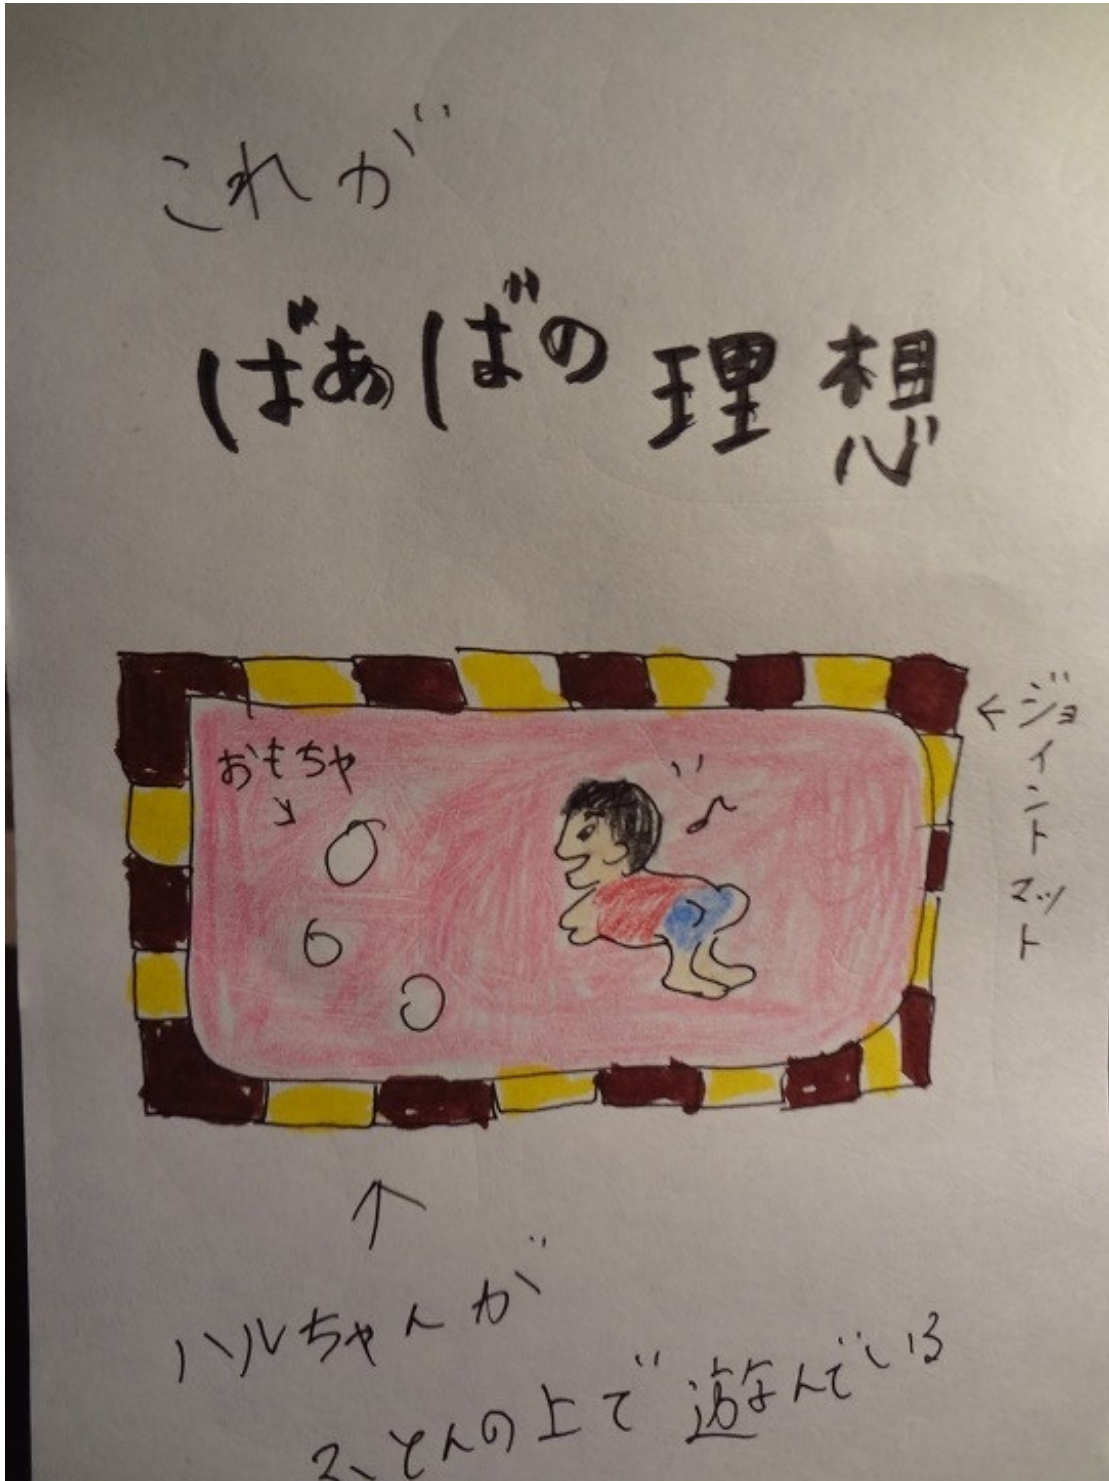 これが
ばあばの理想
おもちゃ
ジョイントマット
ハルちゃんが
ふとんの上で遊んでいる